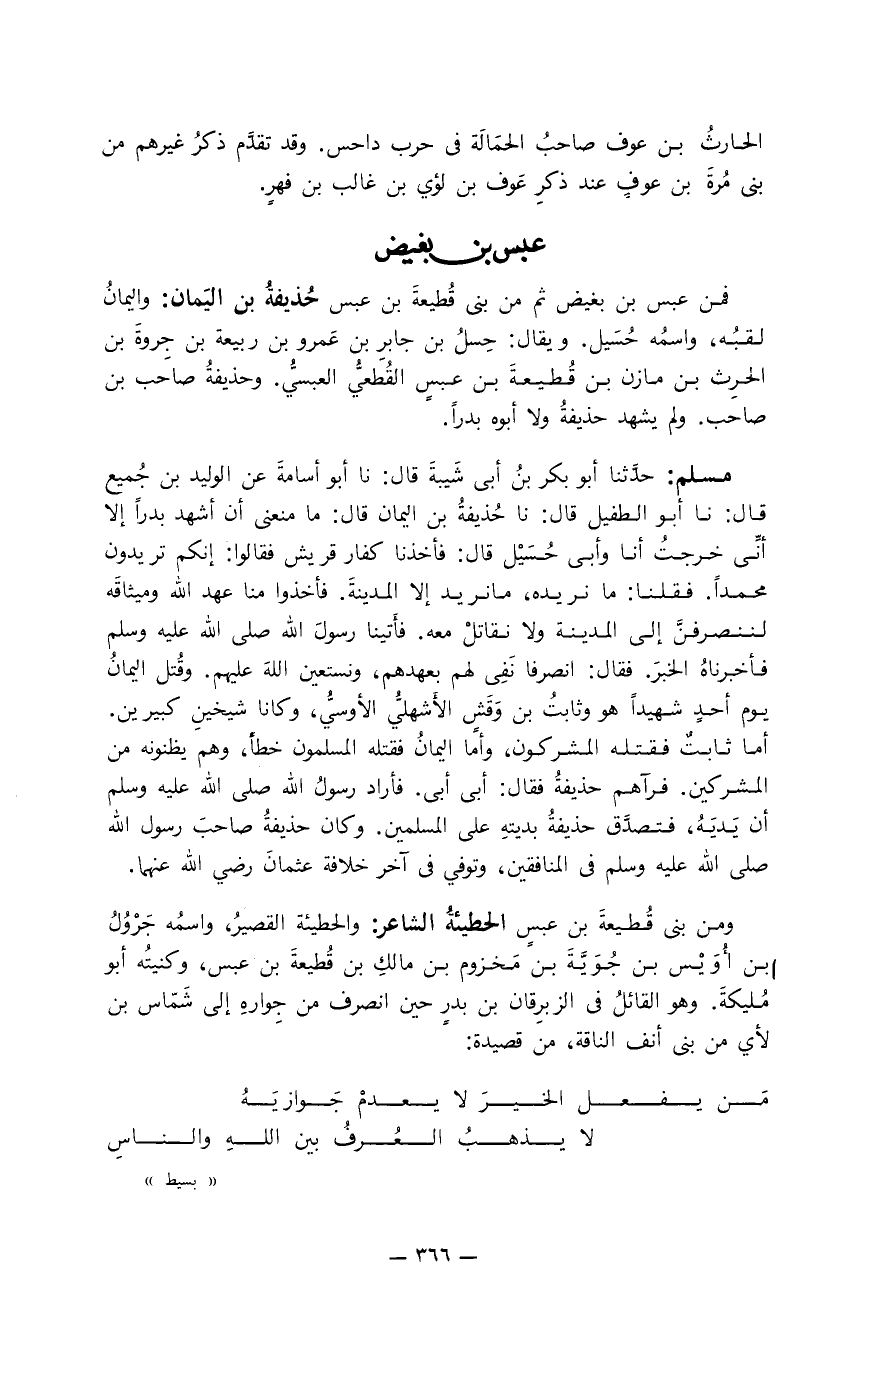 الحارثُ بن عوف صاحبُ الحَمَالَة فى حرب داحس. وقد تقدَّم ذكرُ غيرهم من
بنى مُرةَ بن عوفٍ عند ذكرِ عَوف بن لؤي بن غالب بن فهرٍ.
عبس بن بغيض
فمن عبس بن بغيض ثم من بنى قُطيعةَ بن عبس حُذيفةُ بن اليَمان: واليمانُ
لقبُه، واسمُه حُسَيل. ويقال: حِسلُ بن جابرِ بن عَمرو بن ربيعة بن جِروةَ بن
الحرِث بن مازن بن قُطيعةَ بن عبسٍ القُطَعيُّ العبسيُّ. وحذيفةُ صاحب بن
صاحب. ولم يشهد حذيفةُ ولا أبوه بدراً.
مسلم: حدَّثنا أبو بكر بنُ أبى شَيبةَ قال: نا أبو أسامةَ عن الوليد بن جُميع
قال: نا أبو الطفيل قال: نا حُذيفةُ بن اليمان قال: ما منعنى أن أشهد بدراً إلا
أنِّى خرجتُ أنا وأبى حُسَيْل قال: فأخذنا كفار قريش فقالوا: إنكم تريدون
محمداً. فقلنا: ما نريده، مانريد إلا المدينةَ. فأخذوا منا عهد الله وميثاقَه
لننصرفنَّ إلى المدينة ولا نقاتلْ معه. فأَتينا رسولَ الله صلى الله عليه وسلم
فأخبرناهُ الخبرَ. فقال: انصرفا نَفِى لهم بعهدهم، ونستعين اللهَ عليهم. وقُتل اليمانُ
يوم أحدٍ شهيداً هو وثابتُ بن وَقَشٍ الأَشهليُّ الأوسيُّ، وكانا شيخينِ كبيرين.
أما ثابتٌ فقتله المشركون، وأما اليمانُ فقتله المسلمون خطأً، وهم يظنونه من
المشركين. فرآهم حذيفةُ فقال: أبى أبى. فأراد رسولُ الله صلى الله عليه وسلم
أن يَدِيَهُ، فتصدَّق حذيفةُ بديتهِ على المسلمين. وكان حذيفةُ صاحبَ رسول الله
صلى الله عليه وسلم فى المنافقين، وتوفي فى آخر خلافة عثمانَ رضي الله عنهما.
ومن بنى قُطيعةَ بن عبسٍ الحطيئةُ الشاعر: والحطيئة القصيرُ، واسمُه جَرْوُلُ
بن أُوَيْس بن جُوَيَّةَ بن مَخزوم بن مالكِ بن قُطيعةَ بن عبس، وكنيتُه أبو
مُليكةَ. وهو القائلُ فى الزبرِقان بن بدرٍ حين انصرف من جوارهِ إلى شَمّاس بن
لأي من بنى أنف الناقة، من قصيدة:
مَن يفعل الخيرَ لا يعدمْ جَوازيَهُ
لا يذهبُ العُرفُ بين اللهِ والناسِ
« بسيط »
— ٣٦٦ —